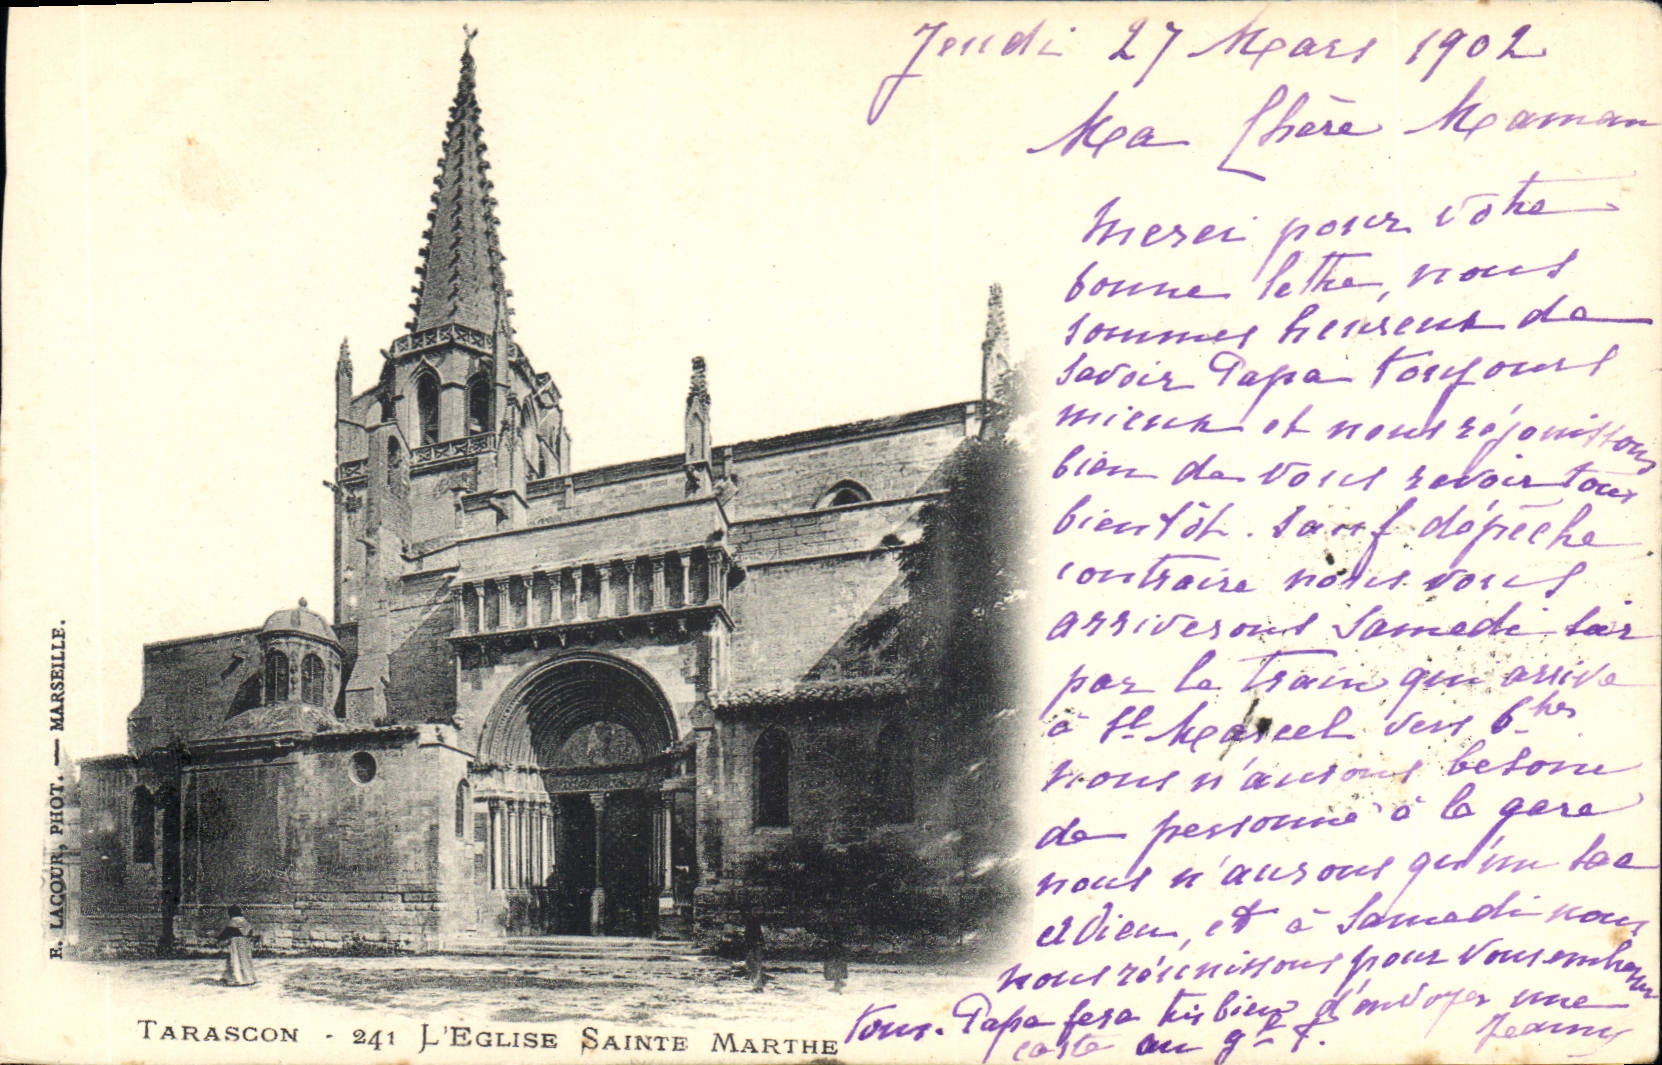 Jeudi 27 Mars 1902
Ma Chère Maman
Merci pour votre
bonne lettre, nous
sommes heureux de
savoir Papa toujours
mieux et nous réjouissons
bien de vous revoir tous
bientôt. Sauf dépêche
contraire nous vous
arriverons Samedi soir
par le train qui arrive
à St Marcel vers 6 hes
nous n'aurons besoin
de personne à la gare
nous n'aurons qu'un sac
et à Samedi nous
nous réunissons pour vous embrasser
tous. Papa fera très bien d'envoyer une
carte au gd
Jeanny
E. LACOUR, PHOT. — MARSEILLE.
TARASCON - 241 L'EGLISE SAINTE MARTHE